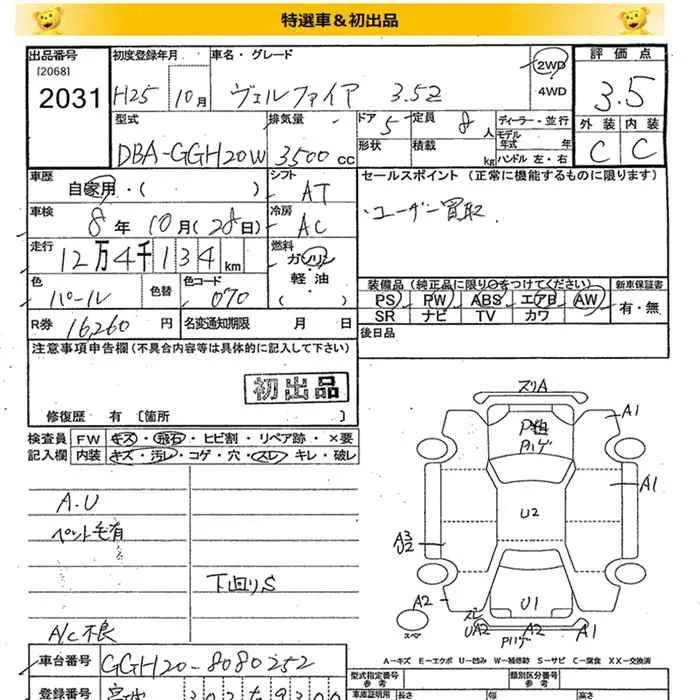 特選車＆初出品
出品番号 [2068] 2031
初度登録年月 H25 10月
車名・グレード ヴェルファイア 3.5Z
2WD 4WD
評価点 3.5
外装 C 内装 C
型式 DBA-GGH20W
排気量 3500cc
ドア 5 定員 8人
形状 積載 kg
ディーラー・並行
モデル年式 年
ハンドル 左・右
車歴 自家用・( )
シフト AT
セールスポイント (正常に機能するものに限ります)
・ユーザー買取.
車検 8年10月(28日)
冷房 AC
走行 12万4千134km
燃料 ガソリン・軽油・( )
色 パール 色替 色コード 070
装備品(純正品に限り○をつけてください) 新車保証書
PS PW ABS エアB AW 有・無
SR ナビ TV カワ
R券 16,260円 名変通知期限 月 日
後日品
注意事項申告欄(不具合内容等は具体的に記入して下さい)
初出品
修復歴 有 [箇所 ]
検査員記入欄 FW キズ・飛石・ヒビ割・リペア跡・×要
内装 キズ・汚レ・コゲ・穴・スレ・キレ・破レ
A.U
ペット毛有
下回りS
A/C不良
ズリA
A1
Pハゲ
A1
U2
A3
U2
A2
U1
ズレ
UA2
A2
A1
Pハゲ
スペ
A-キズ E-エクボ U-凹み W-補修跡 S-サビ C-腐食 XX-交換済
車台番号 GGH20-8080252
型式指定番号 参考
類別区分番号 参考
登録番号
車庫証明用 参考 長さ 幅 高さ